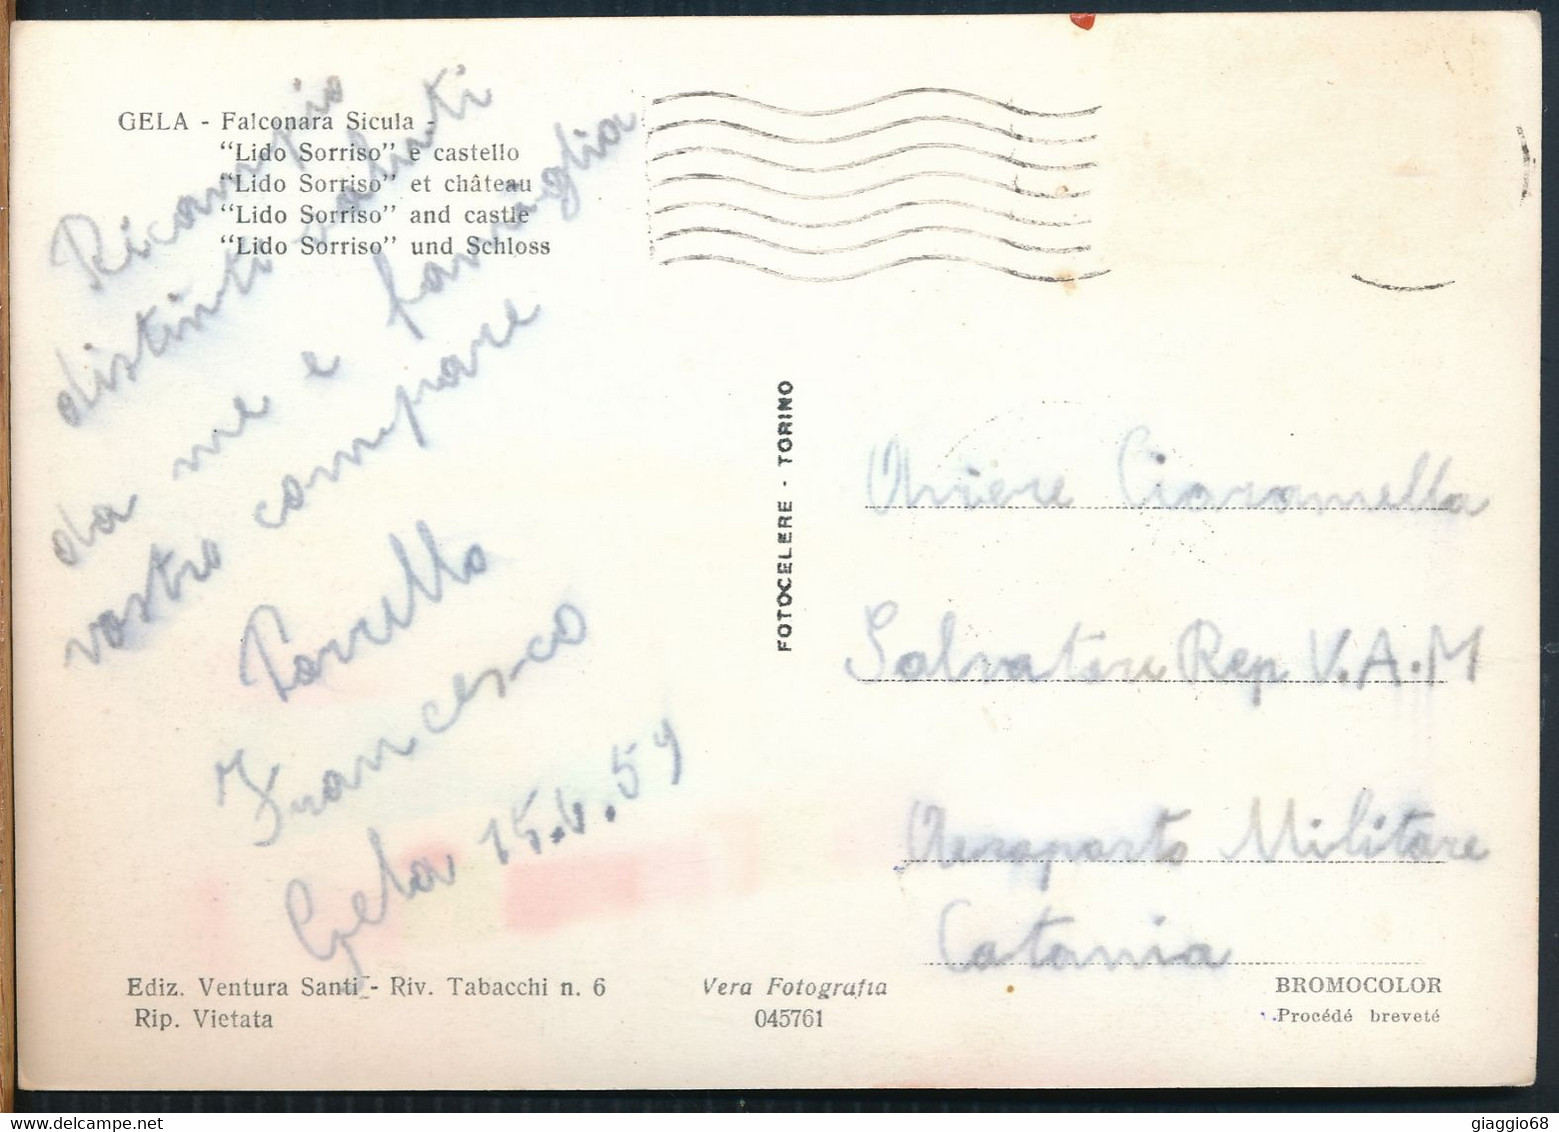 GELA - Falconara Sicula -
"Lido Sorriso" e castello
"Lido Sorriso" et château
"Lido Sorriso" and castle
"Lido Sorriso" und Schloss
Ricambio
distinti saluti
da me e famiglia
vostro compare
Porrello
Francesco
Gela 15.4.59
FOTOCELERE - TORINO
Aviere Ciaramella
Salvatore Rep V.A.M
Aeroporto Militare
Catania
Ediz. Ventura Santi - Riv. Tabacchi n. 6
Rip. Vietata
Vera Fotografia
045761
BROMOCOLOR
Procédé breveté
giaggio68